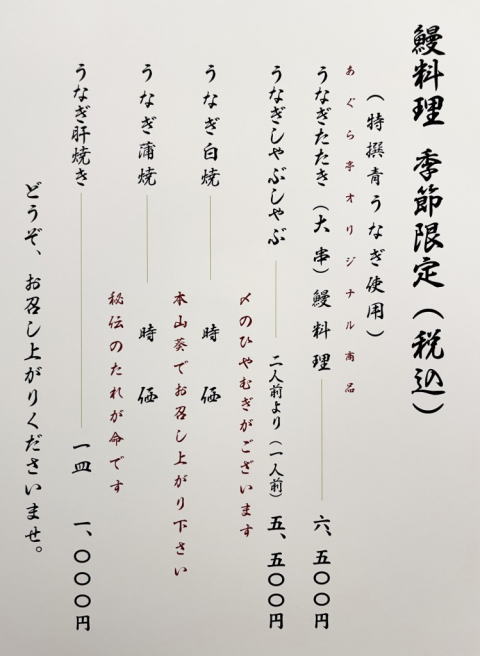 鰻料理 季節限定（税込）
（特撰青うなぎ使用）
あぐら亭オリジナル商品
うなぎたたき（大串）鰻料理 六、五〇〇円
うなぎしゃぶしゃぶ 二人前より（一人前）五、五〇〇円
〆のひやむぎがございます
うなぎ白焼 時価
本山葵でお召し上がり下さい
うなぎ蒲焼 時価
秘伝のたれが命です
うなぎ肝焼き 一皿 一、〇〇〇円
どうぞ、お召し上がりくださいませ。